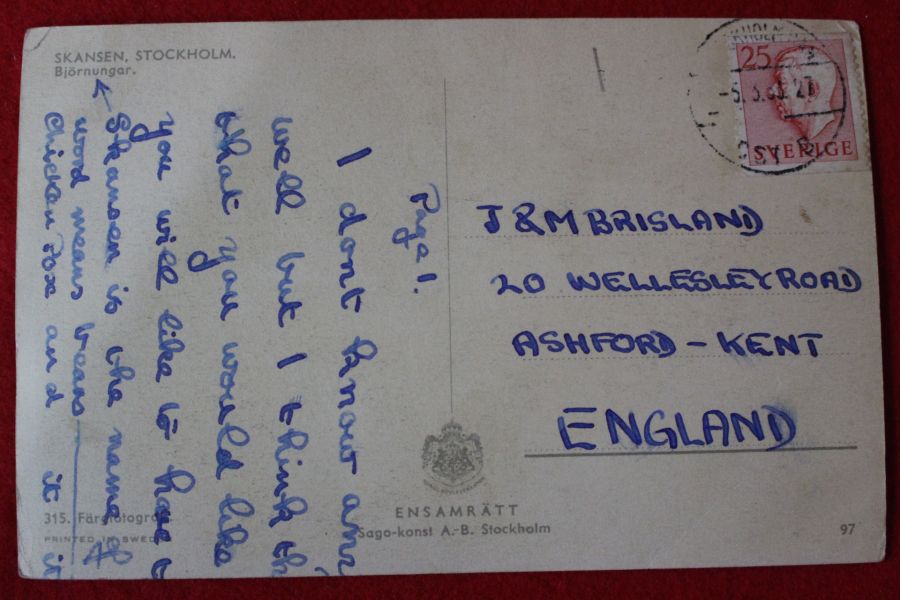 SKANSEN, STOCKHOLM.
Björnungar.
Page 1.
I dont know any
well but I think th
that you would like
you will like to have t
Skansen is the name of
word means bears
chicken Pox and it it
J & M BRISLAND
20 WELLESLEY ROAD
ASHFORD - KENT
ENGLAND
25
SVERIGE
ENSAMRÄTT
Sago-konst A.-B. Stockholm
97
315. Färgfotogra
PRINTED IN SWED